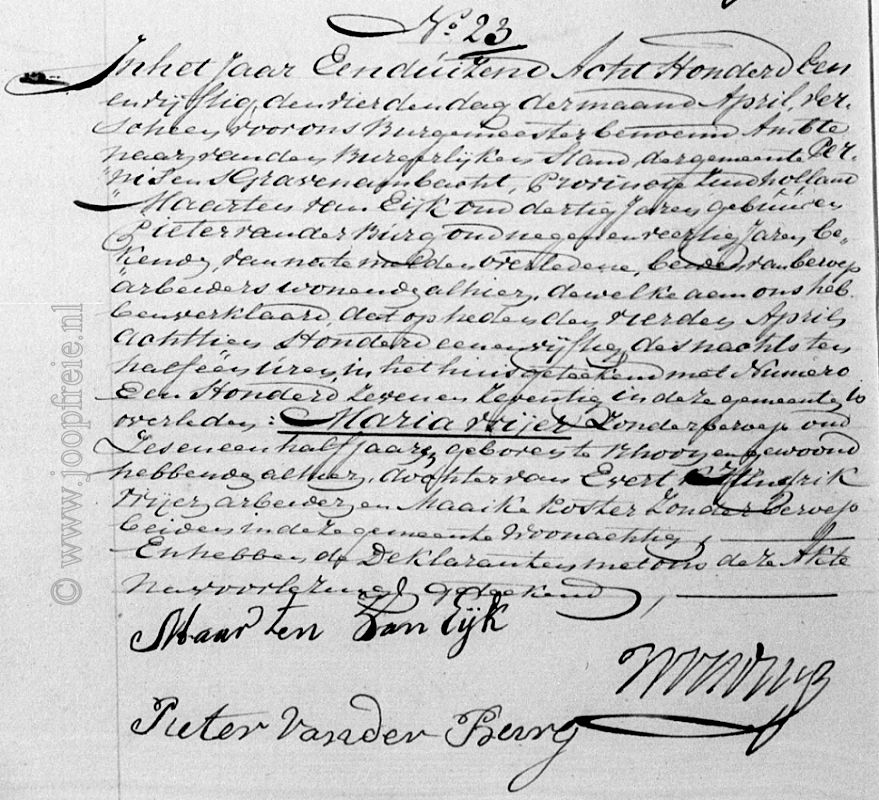 No. 23
In het Jaar Eenduizend Acht Honderd Een
en vijftig, den vierden dag der maand April, ver-
scheen voor ons Burgemeester benoemd Ambte
naar van den Burgerlijken Stand, der gemeente Per-
"nis en 'sGravenambacht, Provincie Zuidholland
Maarten van Eijk oud dertig Jaren gebuur en
Pieter van der Burg oud negen en veertig Jaren, be-
"kende, van na te melden overledene, beiden van beroep
"arbeiders wonende alhier, dewelke aan ons heb-
ben verklaard dat op heden den vierden April
achttien Honderd een en vijftig des nachts ten
half één Uren, in het huis geteekend met Numero
Een Honderd Zeven en Zeventig in deze gemeente is
overleden: Maria vrijer Zonder beroep oud
Zes en een half jaar, geboren te Rhoon gewoond
hebbende alhier, dochter van Evert Hendrik
vrijer arbeider, en Maaike Koster Zonder Beroep
beiden in deze gemeente Woonachtig,
En hebben de Deklaranten met ons deze Akte
na voorlezing geteekend,
Maarten Van Eijk
Pieter Vander Burg
© www.joopfreie.nl